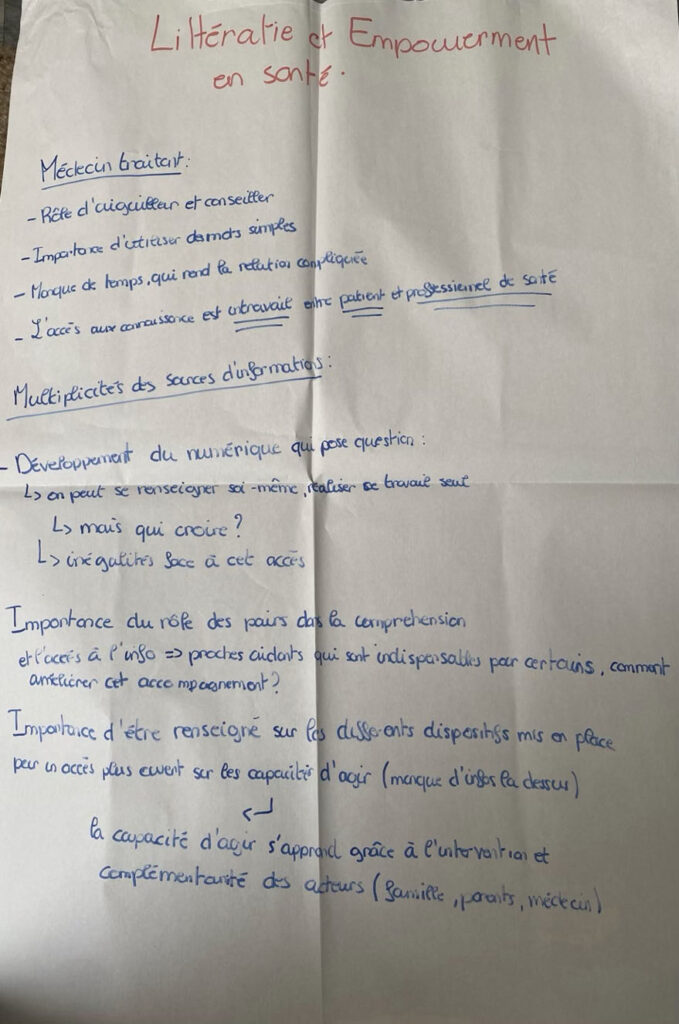 Littératie et Empowerment
en santé.
Médecin traitant :
- Rôle d'aiguilleur et conseiller
- Importance d'utiliser des mots simples
- Manque de temps, qui rend la relation compliquée
- L'accès aux connaissance est un travail entre patient et professionnel de santé
Multiplicités des sources d'informations :
- Développement du numérique qui pose question :
↳ on peut se renseigner soi-même, réaliser ce travail seul
↳ mais qui croire ?
↳ inégalités face à cet accès
Importance du rôle des pairs dans la comprehension
et l'accès à l'info => proches aidants qui sont indispensables pour certains, comment
améliorer cet accompagnement ?
Importance d'être renseigné sur les différents dispositifs mis en place
pour un accès plus ouvert sur les capacités d'agir (manque d'infos la dessus)
↲
la capacité d'agir s'apprend grâce à l'intervention et
complémentarité des acteurs (famille, parents, médecin)